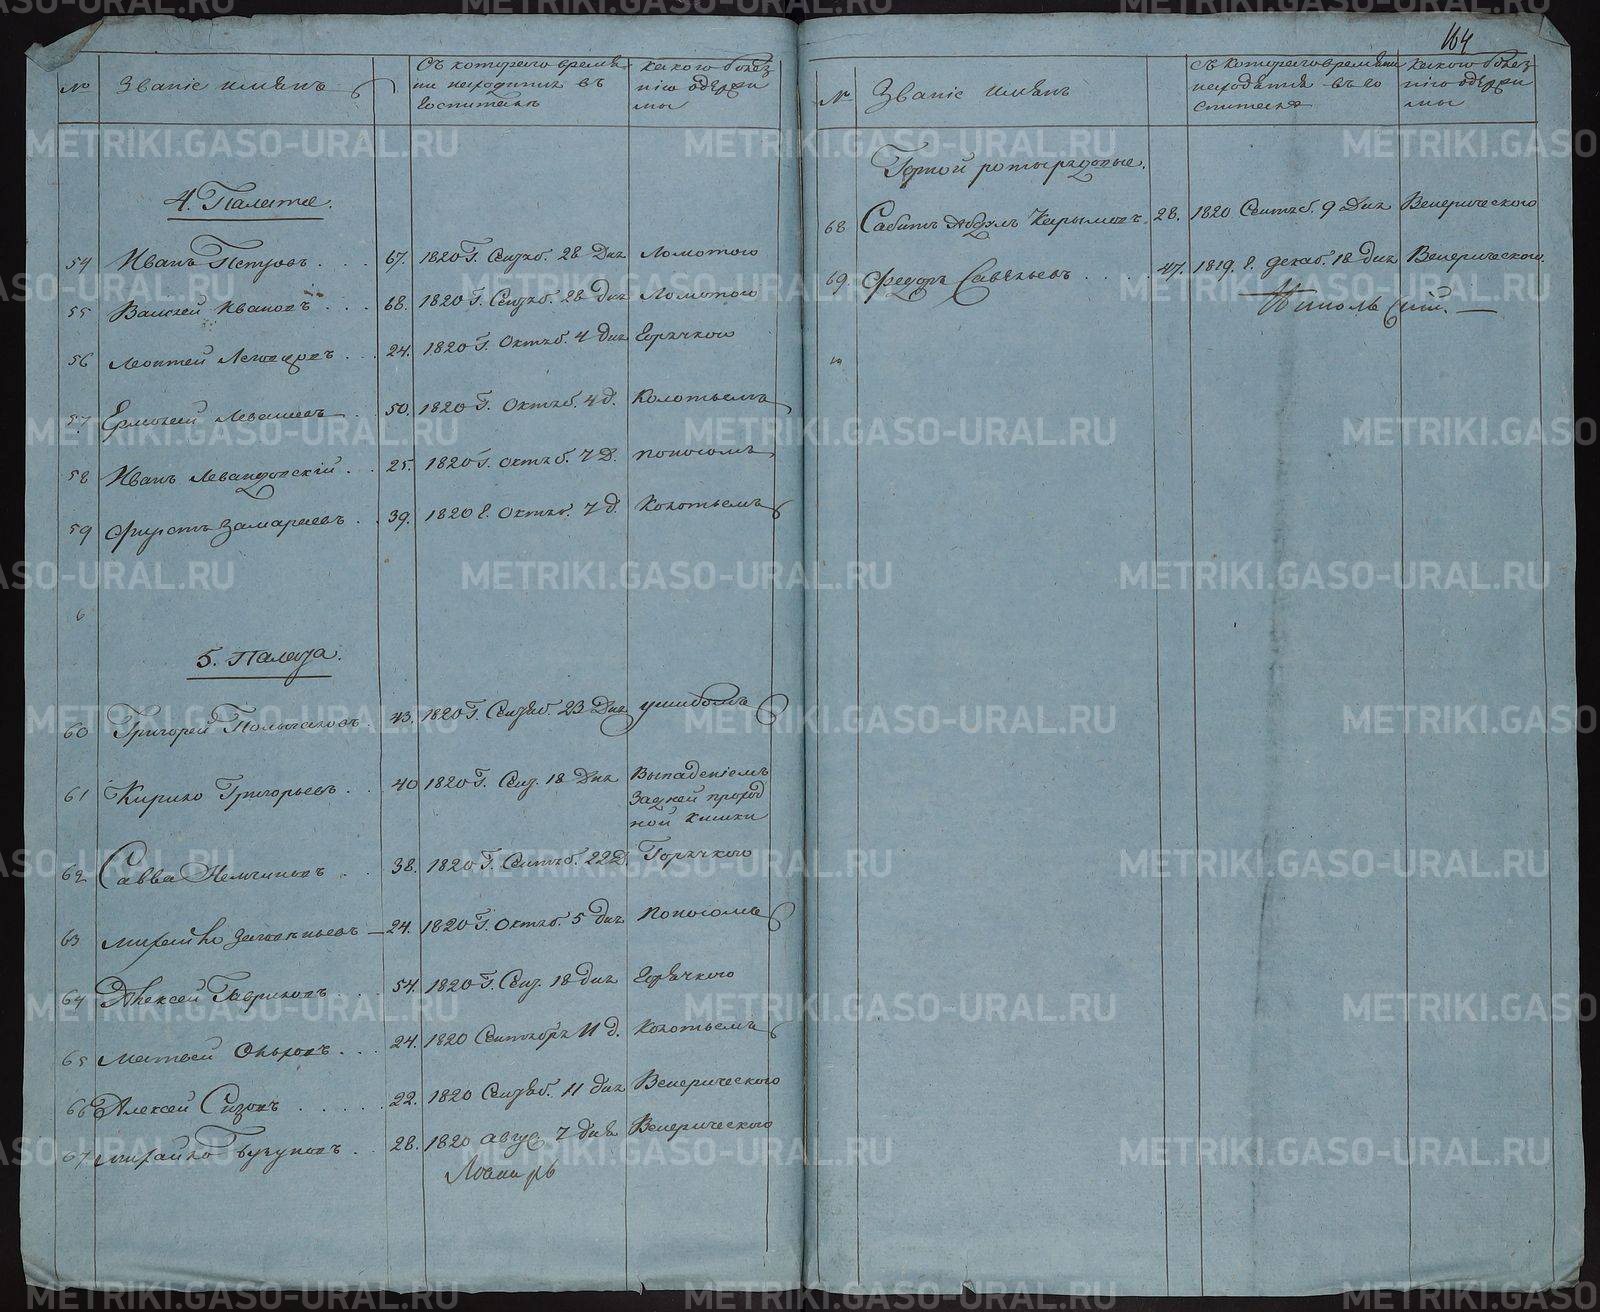 № Званіе имянъ
Съ котораго время-
ни находится въ
Госпитале
какого болез
нію одержи
мы
4. Палата.
54 Иванъ Петровъ. 67. 1820 Г. Сентяб. 28 Дня Ломотою
55 Иванов 68. 1820 Г. Сентяб. 28 дня Ломотою
56 Леонтей 24. 1820 Г. Октяб. 4 дня Горячкою
57 Ермолей 50. 1820 Г. Октяб. 4 д. Колотьемъ
58 Иванъ Левандовскій 25. 1820 Г. Октяб. 7 Д. поносомъ
59 Фирстъ Замараевъ 39. 1820 г. Октяб. 7 д. Колотьемъ
6
5. Палата.
60 Григорей 43. 1820 Г. Сентяб. 23 Дня ушибомъ
61 Кирило Григорьевъ 40 1820 Г. Сен. 18 Дня Выпаденіемъ
задней проход
ной кишки
62 Савва Немчиновъ 38. 1820 Г. Сентяб. 22 Д. Горячкою
63 Михайло 24. 1820 Г. Октяб. 5 дня Поносомъ
64 Алексей Гавриловъ 54. 1820 Г. Сен. 18 дня Горячкою
65 Матвей 24. 1820 Сентября 11 д. Колотьемъ
66 Алексей Сизовъ 22. 1820 Сентяб. 11 дня Венерическою
67 Михайло 28. 1820 авгус 7 дня Венерическою
104
№ Званіе имянъ
съ котораго времяни
находятся въ го
спитале
какого болез
нію одержи
мы
Горной роты рядовые.
68 Сабитъ Абдулъ Карымовъ 28. 1820 Сентяб. 9 дня Венерическою
69. Федоръ Савельевъ 47. 1819. г. декаб. 18 дня Венерическою.
METRIKI.GASO-URAL.RU